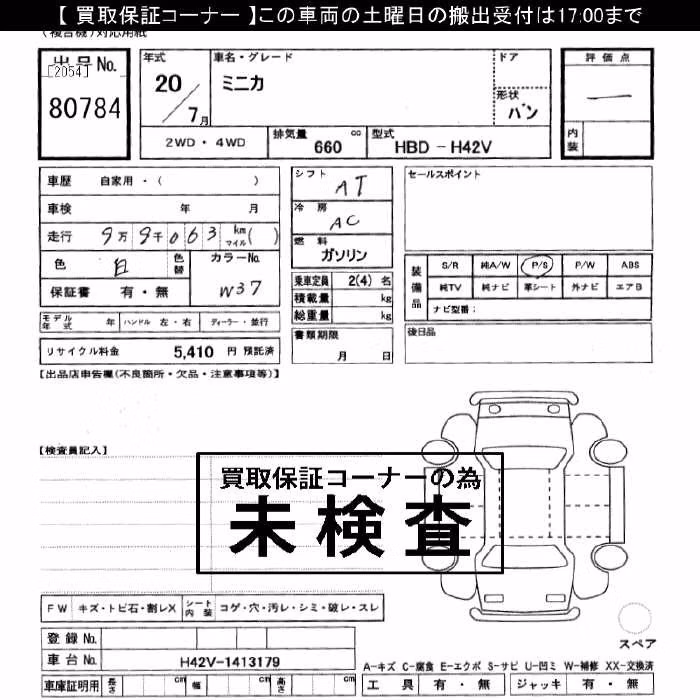 【 買取保証コーナー 】この車両の土曜日の搬出受付は17:00まで
(複合機)対応用紙
出品No.
[2054]
80784
年式
20/7月
車名・グレード
ミニカ
ドア
形状
バン
評価点
一
内装
2WD・4WD
排気量 660 cc
型式 HBD-H42V
車歴 自家用・( )
車検 年 月
走行 9万9千063 km マイル( )
色 白 色替
カラーNo. W37
保証書 有・無
シフト AT
冷房 AC
燃料 ガソリン
乗車定員 2(4) 名
積載量 kg
総重量 kg
書類期限
月 日
セールスポイント
装備品
S/R 純A/W P/S P/W ABS
純TV 純ナビ 革シート 外ナビ エアB
ナビ型番:
後日品
モデル年式 年 ハンドル 左・右 ディーラー・並行
リサイクル料金 5,410 円 預託済
【出品店申告欄(不良箇所・欠品・注意事項等)】
【検査員記入】
買取保証コーナーの為
未検査
FW キズ・トビ石・割レX シート内装 コゲ・穴・汚レ・シミ・破レ・スレ
登録No.
車台No. H42V-1413179
車庫証明用 長さ cm 幅 cm 高さ cm
スペア
A-キズ C-腐食 E-エクボ S-サビ U-凹ミ W-補修 XX-交換済
工具 有・無 ジャッキ 有・無